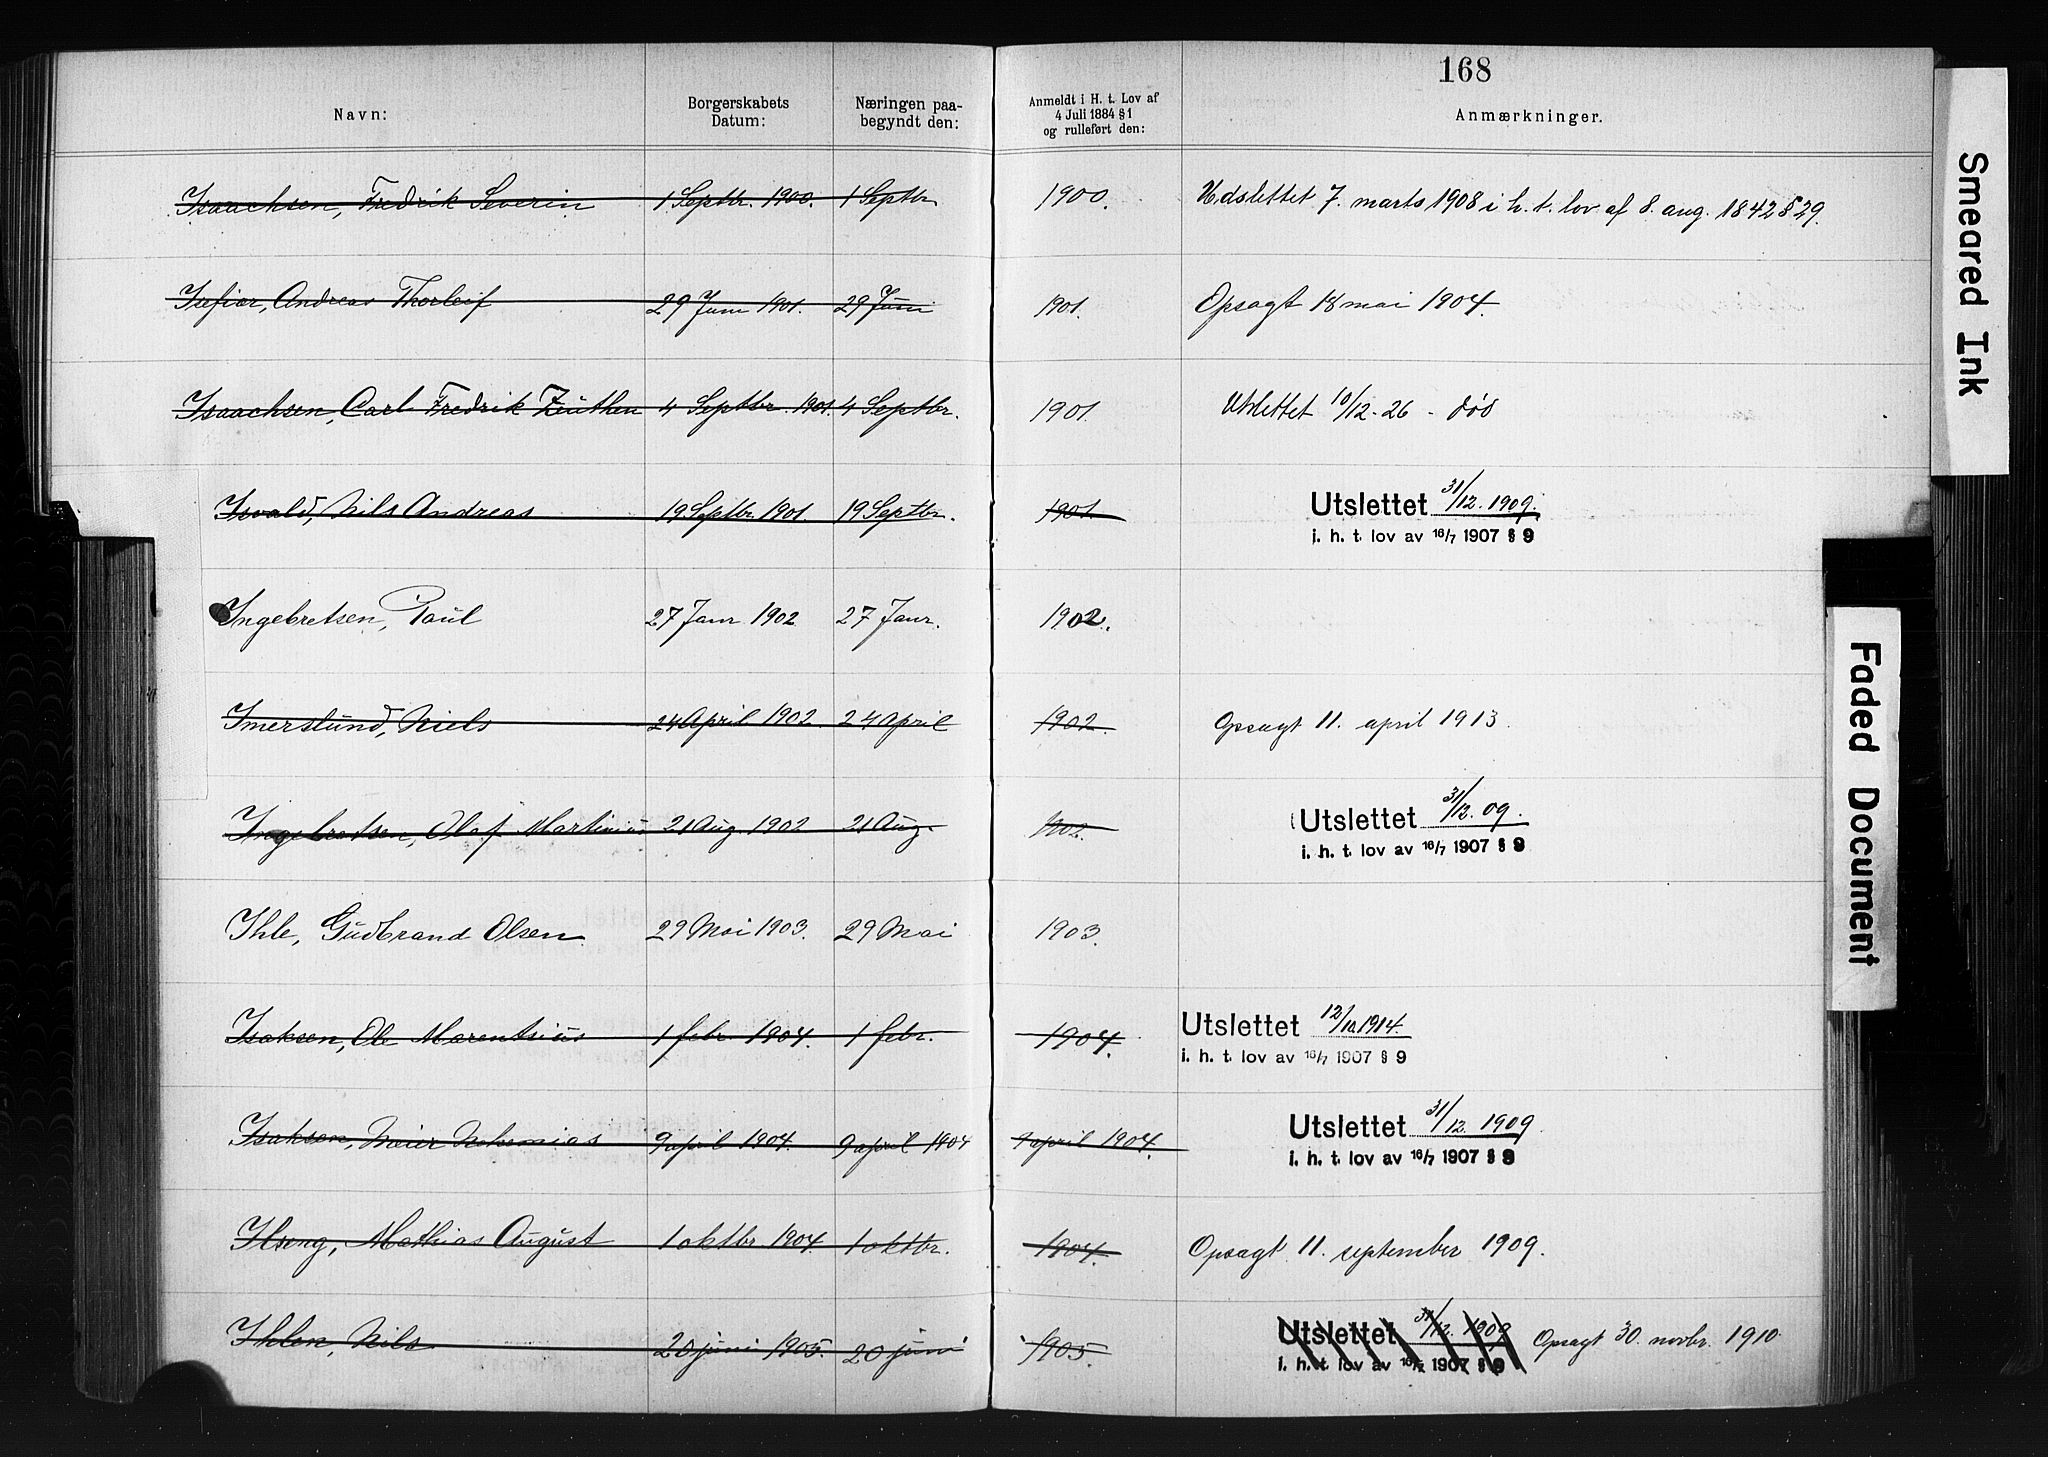 168
Navn: Borgerskabets Datum: Næringen paabegyndt den: Anmeldt i H. t. Lov af 4 Juli 1884 § 1 og rulleført den: Anmærkninger.
Isaachsen, Fredrik Severin 1 Septbr. 1900. 1 Septbr 1900. Udslettet 7. marts 1908 i h. t. lov af 8. aug. 1842 § 29.
Andreas Thorleif 29 Juni 1901. 29 Juni 1901. Opsagt 18 mai 1904.
Isaachsen, Carl Fredrik Zeuthen 4 Septbr 1901. 4 Septbr. 1901. Utslettet 10/12-26 - død
Isvald, Nils Andreas 19 Septbr. 1901. 19 Septbr. 1901. Utslettet 31/12. 1909.
i. h. t. lov av 16/7 1907 § 9
Ingebretsen, Paul 27 Janr 1902 27 Janr. 1902.
Imerslund, Niels 24 April 1902 24 April 1902. Opsagt 11. april 1913.
Ingebretsen, Olaf Martinius 21 Aug 1902 21 Aug. 1902. Utslettet 31/12. 09.
i. h. t. lov av 16/7 1907 § 9
Ihle, Gudbrand Olsen 29 Mai 1903. 29 Mai 1903.
Isaksen, Ole Marentsius 1 febr. 1904. 1 febr. 1904. Utslettet 12/10 1914.
i. h. t. lov av 16/7 1907 § 9
Isaksen, Meier Nehemias 9 april 1904. 9 april 1904 9 april 1904. Utslettet 31/12. 1909.
i. h. t. lov av 16/7 1907 § 9
Ilseng, Mathias August 1 oktbr 1904. 1 oktbr. 1904. Opsagt 11. september 1909.
Ihlen, Nils 20 juni 1905. 20 juni 1905. Utslettet 31/12. 1909 Opsagt 30. novbr. 1910.
i. h. t. lov av 16/7 1907 § 9
Smeared Ink
Faded Document